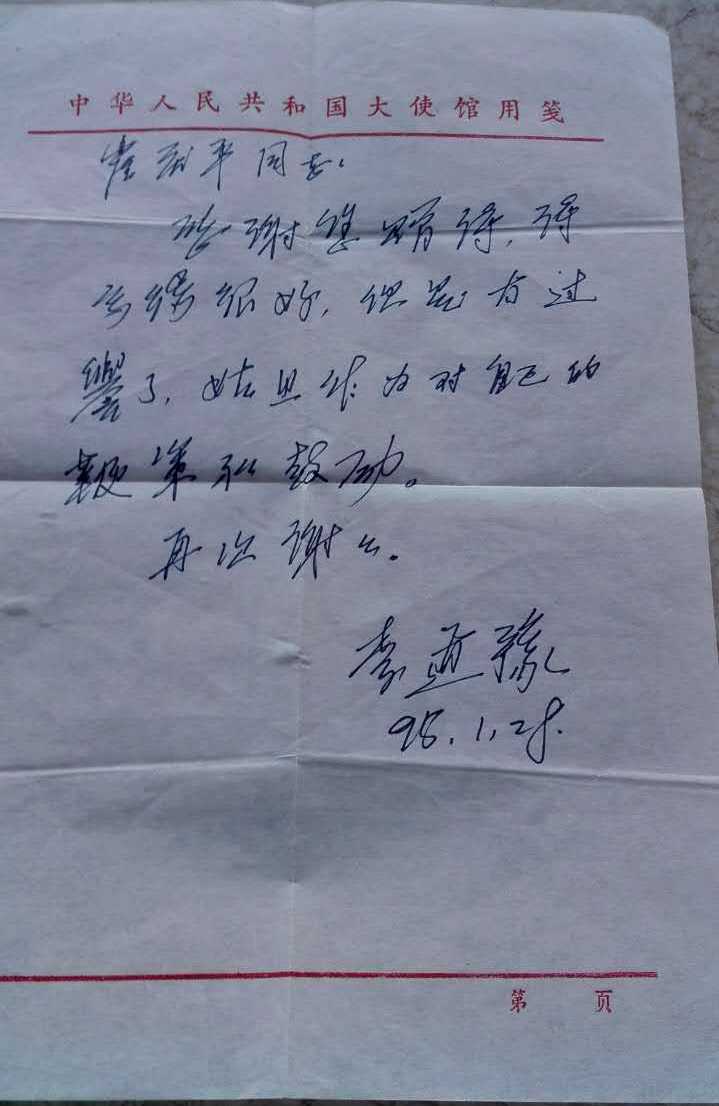 中华人民共和国大使馆用笺
平同志：
感谢您赠诗，诗
写得很好，但是有过
誉了，姑且作为对自己的
鞭策和鼓励。
再次谢谢。
李道豫
98.1.28.
第 页